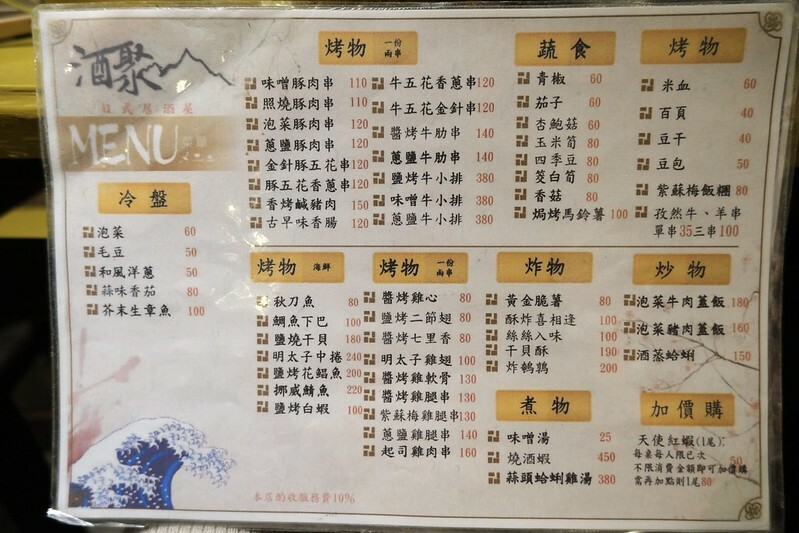 酒聚
日式居酒屋
MENU 菜單
冷盤
泡菜 60
毛豆 50
和風洋蔥 50
蒜味香茄 80
芥末生章魚 100
烤物 一份兩串
味噌豚肉串 110
照燒豚肉串 110
泡菜豚肉串 120
蔥鹽豚肉串 120
金針豚五花串 120
豚五花香蔥串 120
香烤鹹豬肉 150
古早味香腸 120
牛五花香蔥串 120
牛五花金針串 120
醬烤牛肋串 140
蔥鹽牛肋串 140
鹽烤牛小排 380
味噌牛小排 380
蔥鹽牛小排 380
蔬食
青椒 60
茄子 60
杏鮑菇 60
玉米筍 80
四季豆 80
筊白筍 80
香菇 80
焗烤馬鈴薯 100
烤物
米血 60
百頁 40
豆干 40
豆包 50
紫蘇梅飯糰 80
孜然牛、羊串
單串35三串100
烤物 海鮮
秋刀魚 80
鯛魚下巴 100
鹽燒干貝 180
明太子中捲 240
鹽烤花鯧魚 200
挪威鯖魚 220
鹽烤白蝦 100
烤物 一份兩串
醬烤雞心 80
鹽烤二節翅 80
醬烤七里香 80
明太子雞翅 100
醬烤雞軟骨 130
醬烤雞腿串 130
紫蘇梅雞腿串 130
蔥鹽雞腿串 140
起司雞肉串 160
炸物
黃金脆薯 80
酥炸喜相逢 100
絲絲入味 100
干貝酥 190
炸鵪鶉 200
煮物
味噌湯 25
燒酒蝦 450
蒜頭蛤蜊雞湯 380
炒物
泡菜牛肉蓋飯 180
泡菜豬肉蓋飯 160
酒蒸蛤蜊 150
加價購
天使紅蝦(1尾):
每桌每人限已次 50
不限消費金額即可加價購
需再加點則1尾80
本店酌收服務費10%